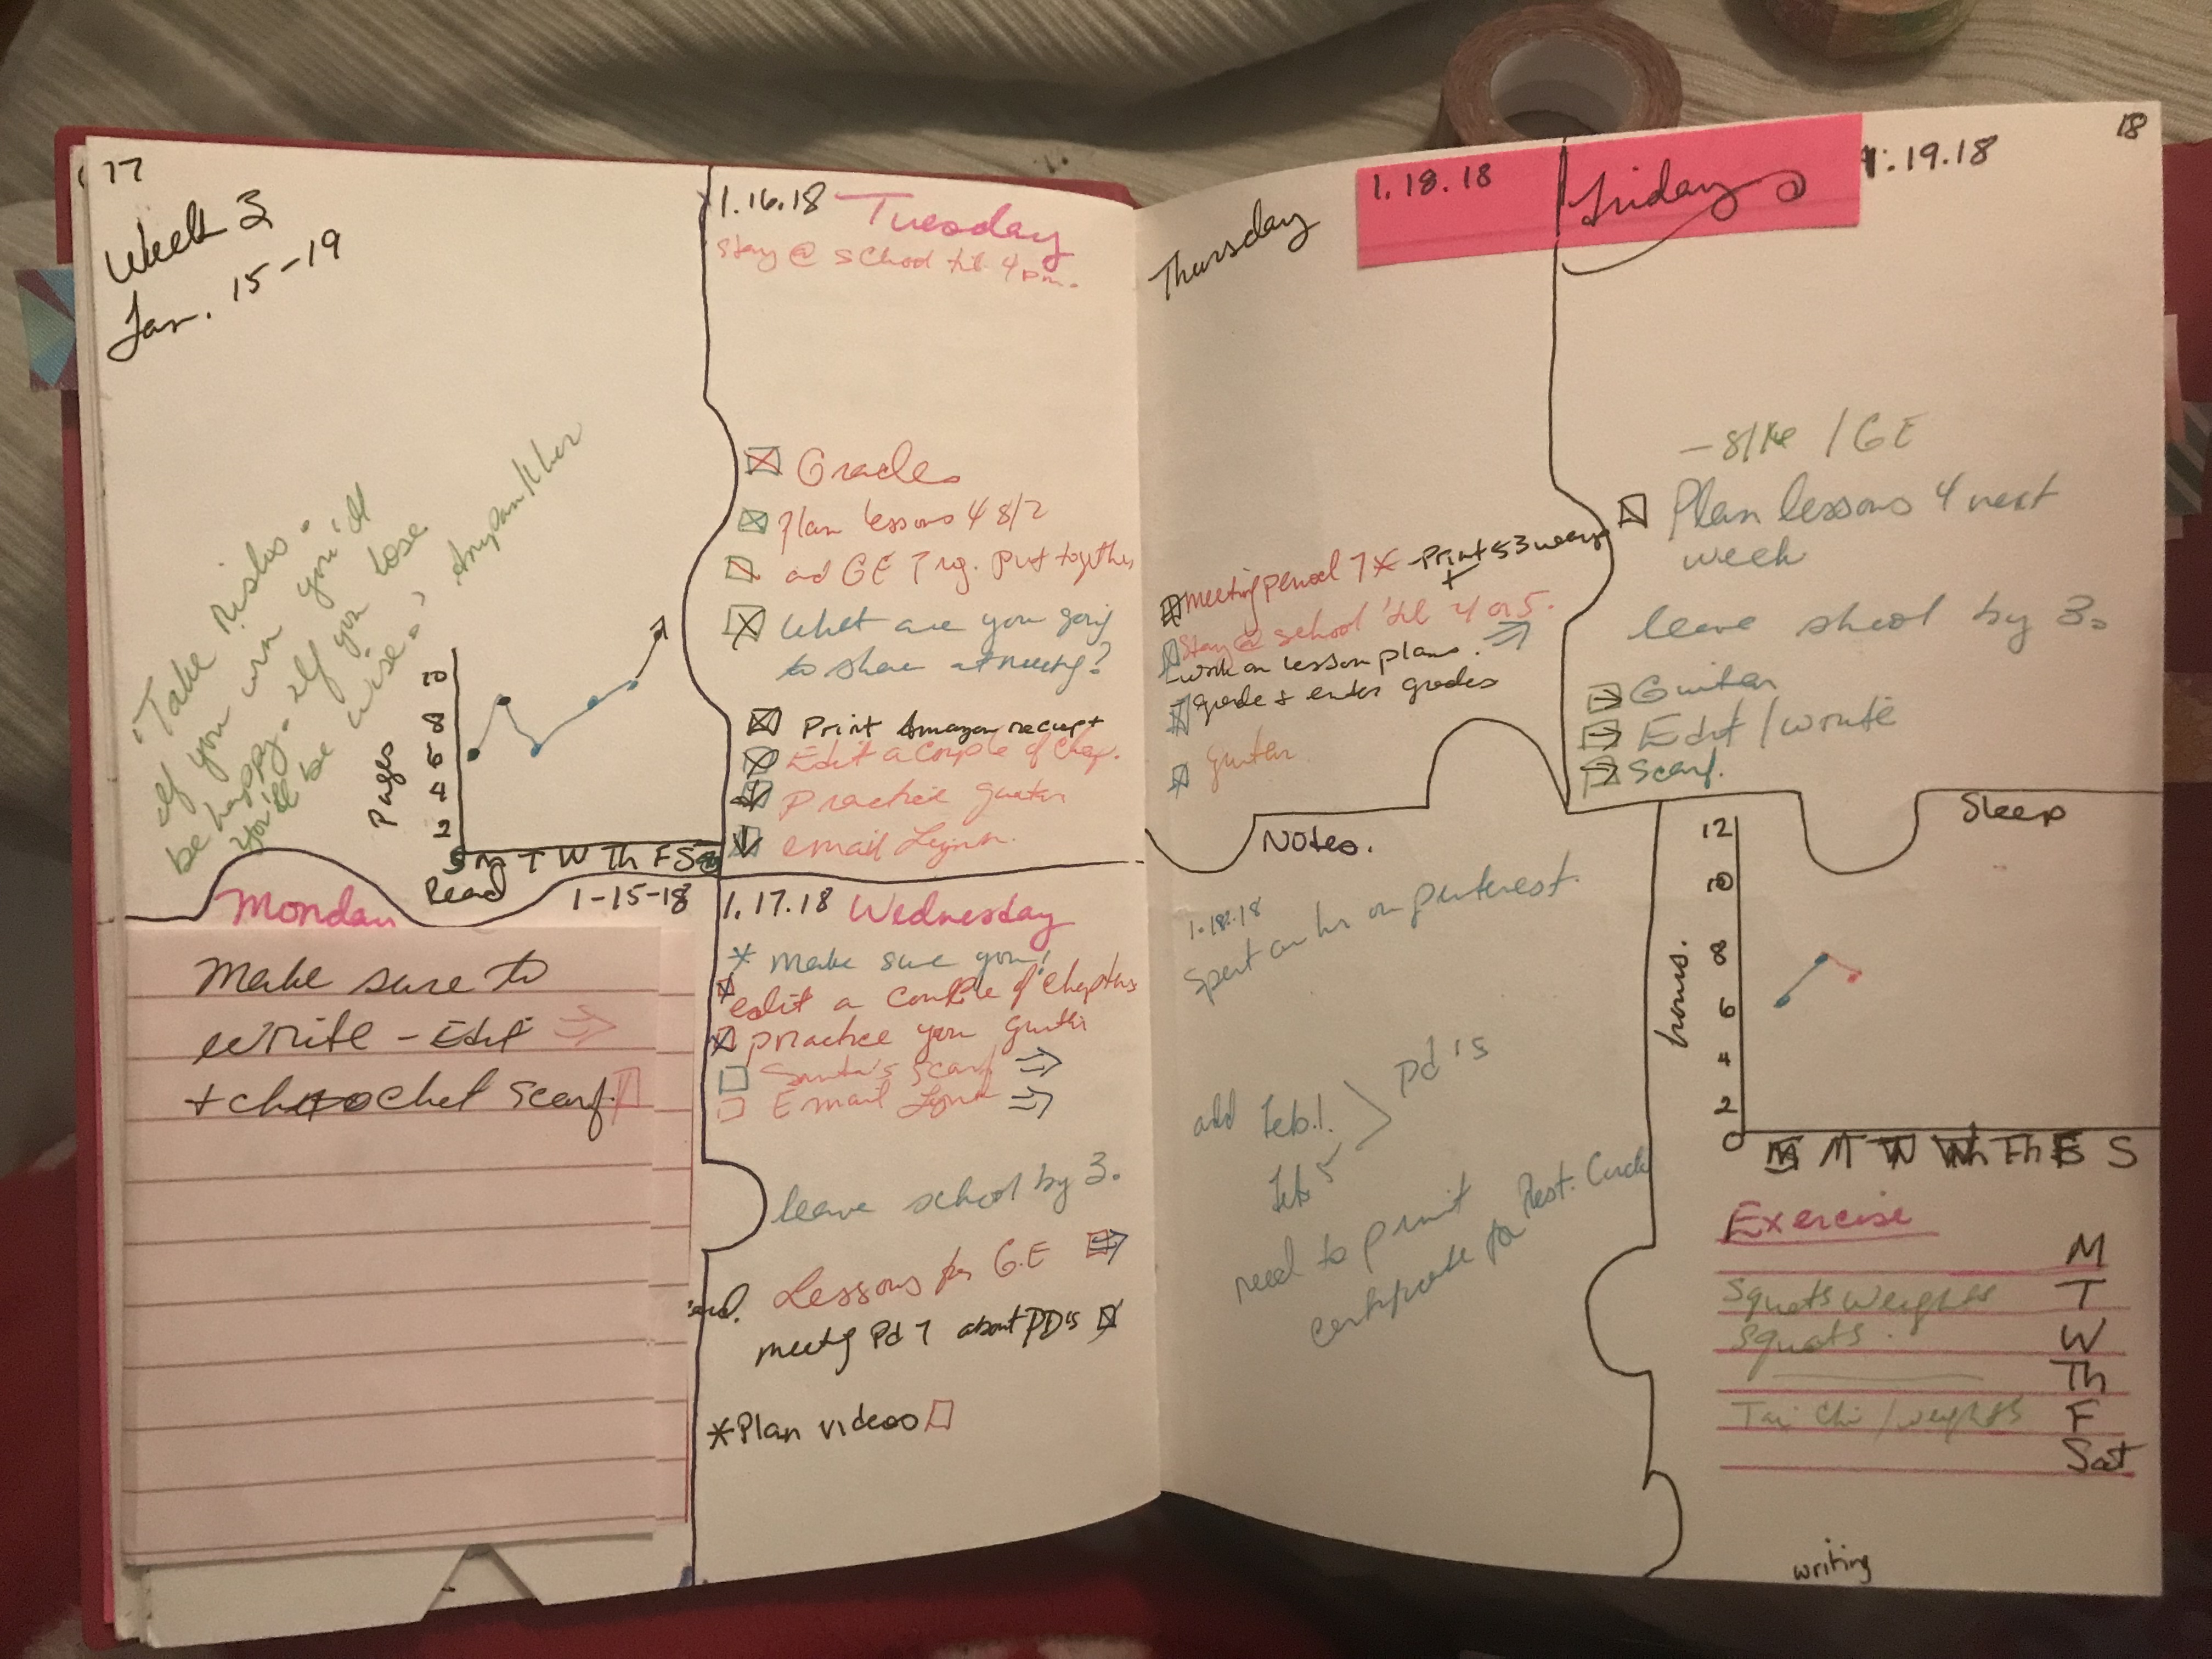 17
Week 3
Jan. 15-19
"Take risks.
If you win you'll
be happy. If you lose
you'll be wise."
Pages
10
8
6
4
2
S M T W Th F S
Read
Monday
1-15-18
Make sure to
write - Edit
+ crochet scarf.
1.16.18 Tuesday
Stay @ school til 4 pm.
Grades
Plan lessons 4 8/2
and GE
put together
What are you going
to share at meeting?
Print Amazon receipt
Edit a couple of chap.
Practice guitar
email Lynn.
1.17.18 Wednesday
* make sure you!
edit a couple of chapters
practice your guitar
Santa's scarf
Email Lynn
leave school by 3.
Lessons for G.E
meetg Pd 7 about PD's
*Plan videos
Thursday
1.18.18
meeting period 7 * - Print
+
Stay @ school 'til 4 or 5.
- work on lesson plans.
grade + enter grades
guitar
Notes.
1.18.18
Spent an hr on pinterest.
add Feb. 1.
Feb 5
Pd's
need to print
certificate for Rest. Circle
Friday
1.19.18
18
/ GE
Plan lessons 4 next
week
leave shool by 3.
Guitar
Edit / write
Scarf.
Sleep
hours.
12
10
8
6
4
2
0
M
Th
S
Exercise
M
Squats weights T
Squats. W
Th
Tai Chi / weights F
Sat
writing